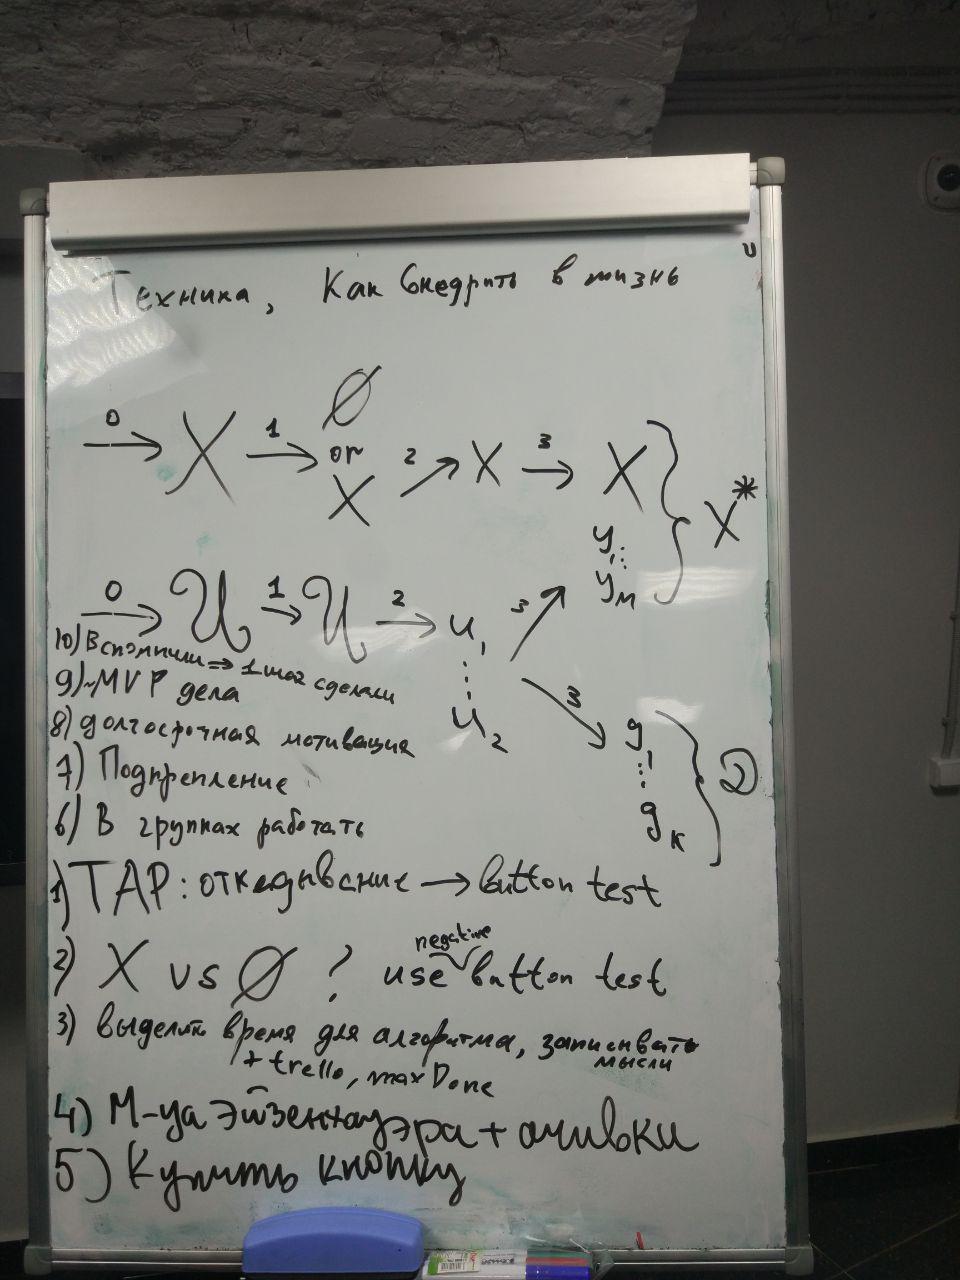 Техника, Как внедрить в жизнь
0 → X 1 → ∅ or X 2 → X 3 → X y₁ ⋮ yₘ } X*
0 → U 1 → U 2 → u₁ ⋮ u₂
3 → 3 → g₁ ⋮ gₖ } D
10) Вспомнили => 1 шаг сделали
9) ~MVP дела
8) долгосрочная мотивация
7) Подкрепление
6) В группах работать
1) TAP: откладывание → button test
2) X vs ∅ ? use negative button test
3) выделить время для алгоритма, записывать мысли
+ trello, maxDone
4) М-ца Эйзенхауэра + ачивки
5) Купить кнопку